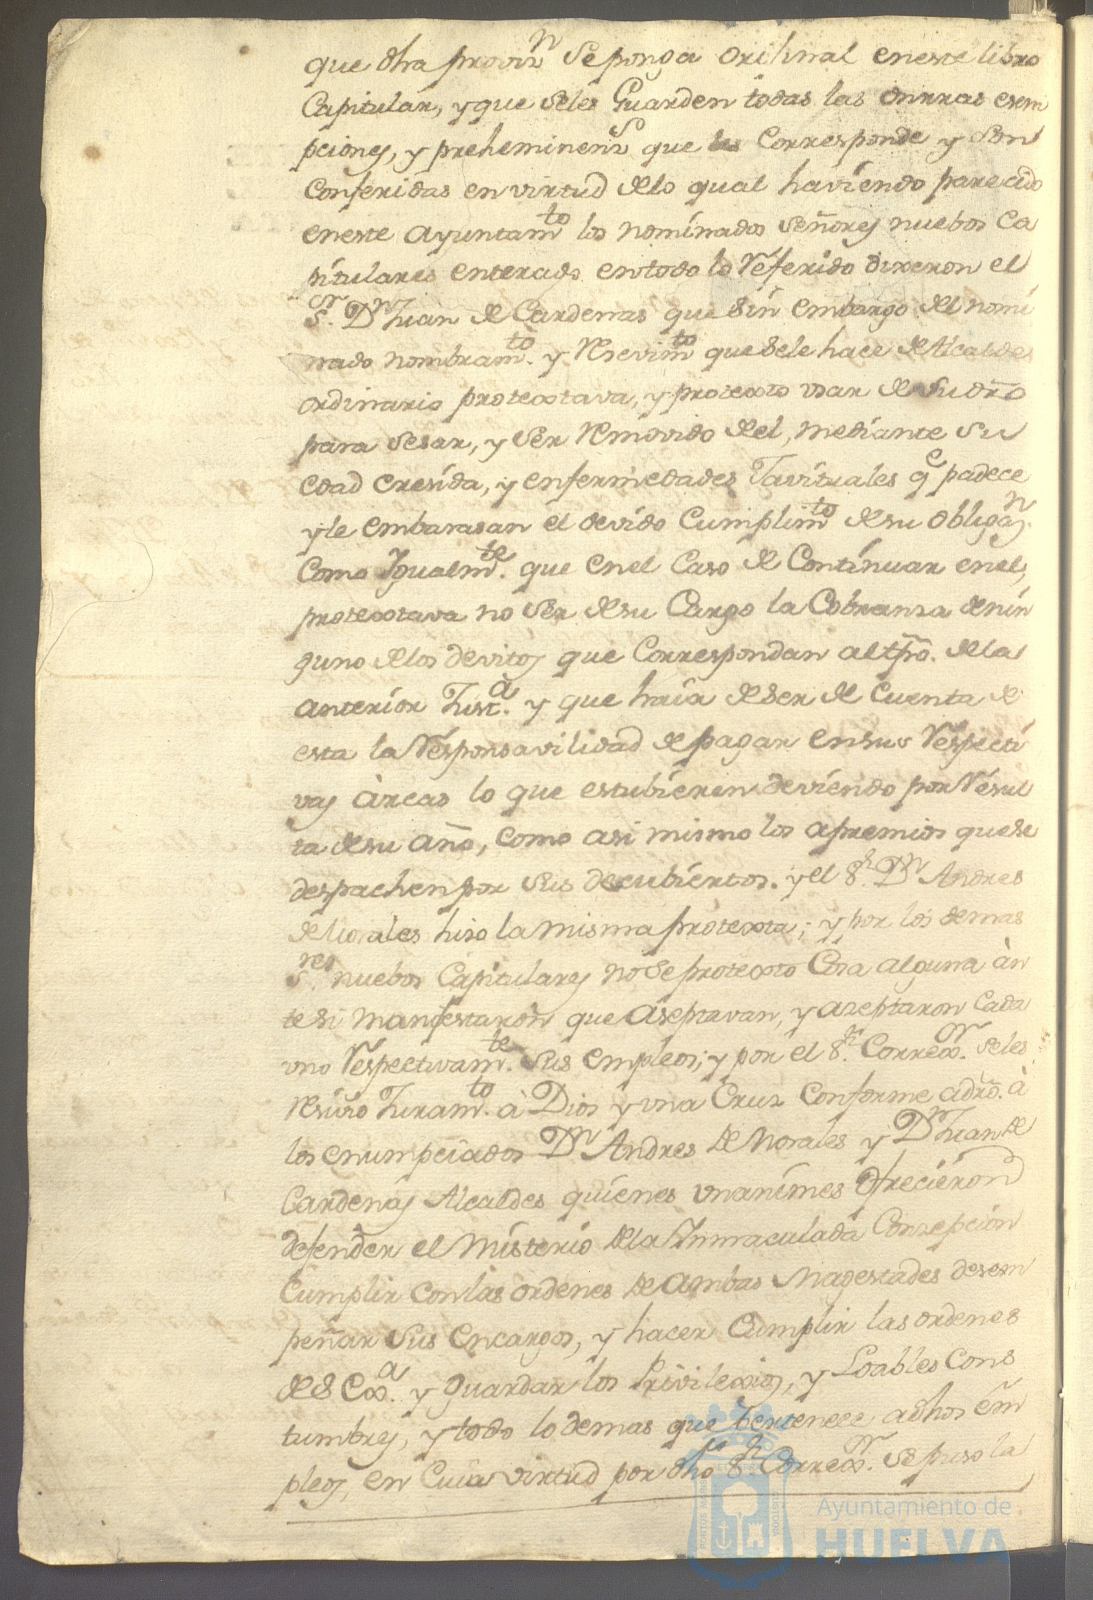 que dha provin.n Se ponga orihinal eneste libro
Capitular, y que seles Guarden todas las onrras esem
pciones, y preheminens que les Corresponde y son
Conferidas en virtud delo qual haviendo parecido
eneste ayuntam.to los nominados señores nuebos Ca
pitulares enterads. entodo lo Referido dixeron el
S.or D.n Juan de Cardenas que sin embargo del nomi
nado nombram.to y Resevim.to que sele hace de Alcalde
ordinario protextava, y protexto usar de su dro
para sesar, y ser Removido del, mediante su
edad cresida, y enfermedades havituales q.e padece
y le embarasan el devido Cumplim.to desu obligaz.n
Como Igualm.te que enel Caso de Continuar enel,
protextava no ser desu Cargo la Cobranza denin
guno delos devitos que Correspondan altpo. dela
anterior Just.a y que havia deser de Cuenta de
esta la Responsavilidad de pagar ensus Respecti
vas àrcas lo que estubieren deviendo por Resul
ta desu año, como asi mismo los apremios quese
despachen por sus decubiertos. y el S.r D.n Andres
de Morales hiso la misma protexta; y por los demas
S.res nuebos Capitulares no se protexto Cosa alguna àn
te si manifestaron que aseptavan, y azeptaron Cada
uno Respectivam.te sus empleos; y por el S.r Correx.or seles
Resivio Juram.to à Dios y una Cruz Conforme adro. à
los enumpciados D.n Andres de Morales y D.n Juan de
Cardenas Alcaldes quienes unanimes ofrecieron
defender el Misterio dela Inmaculada Conzepcion
Cumplir conlas ordenes de ambas Magestades desem
peñar sus encargos, y hacer Cumplir las ordenes
de S Ex.a y guardar los Privilexios, y Loables Cons
tumbres, y todo lo demas que pertenece adhos em
pleos, en Cuia virtud por dho S.r Correx.or se puso la
Ayuntamiento de
HUELVA